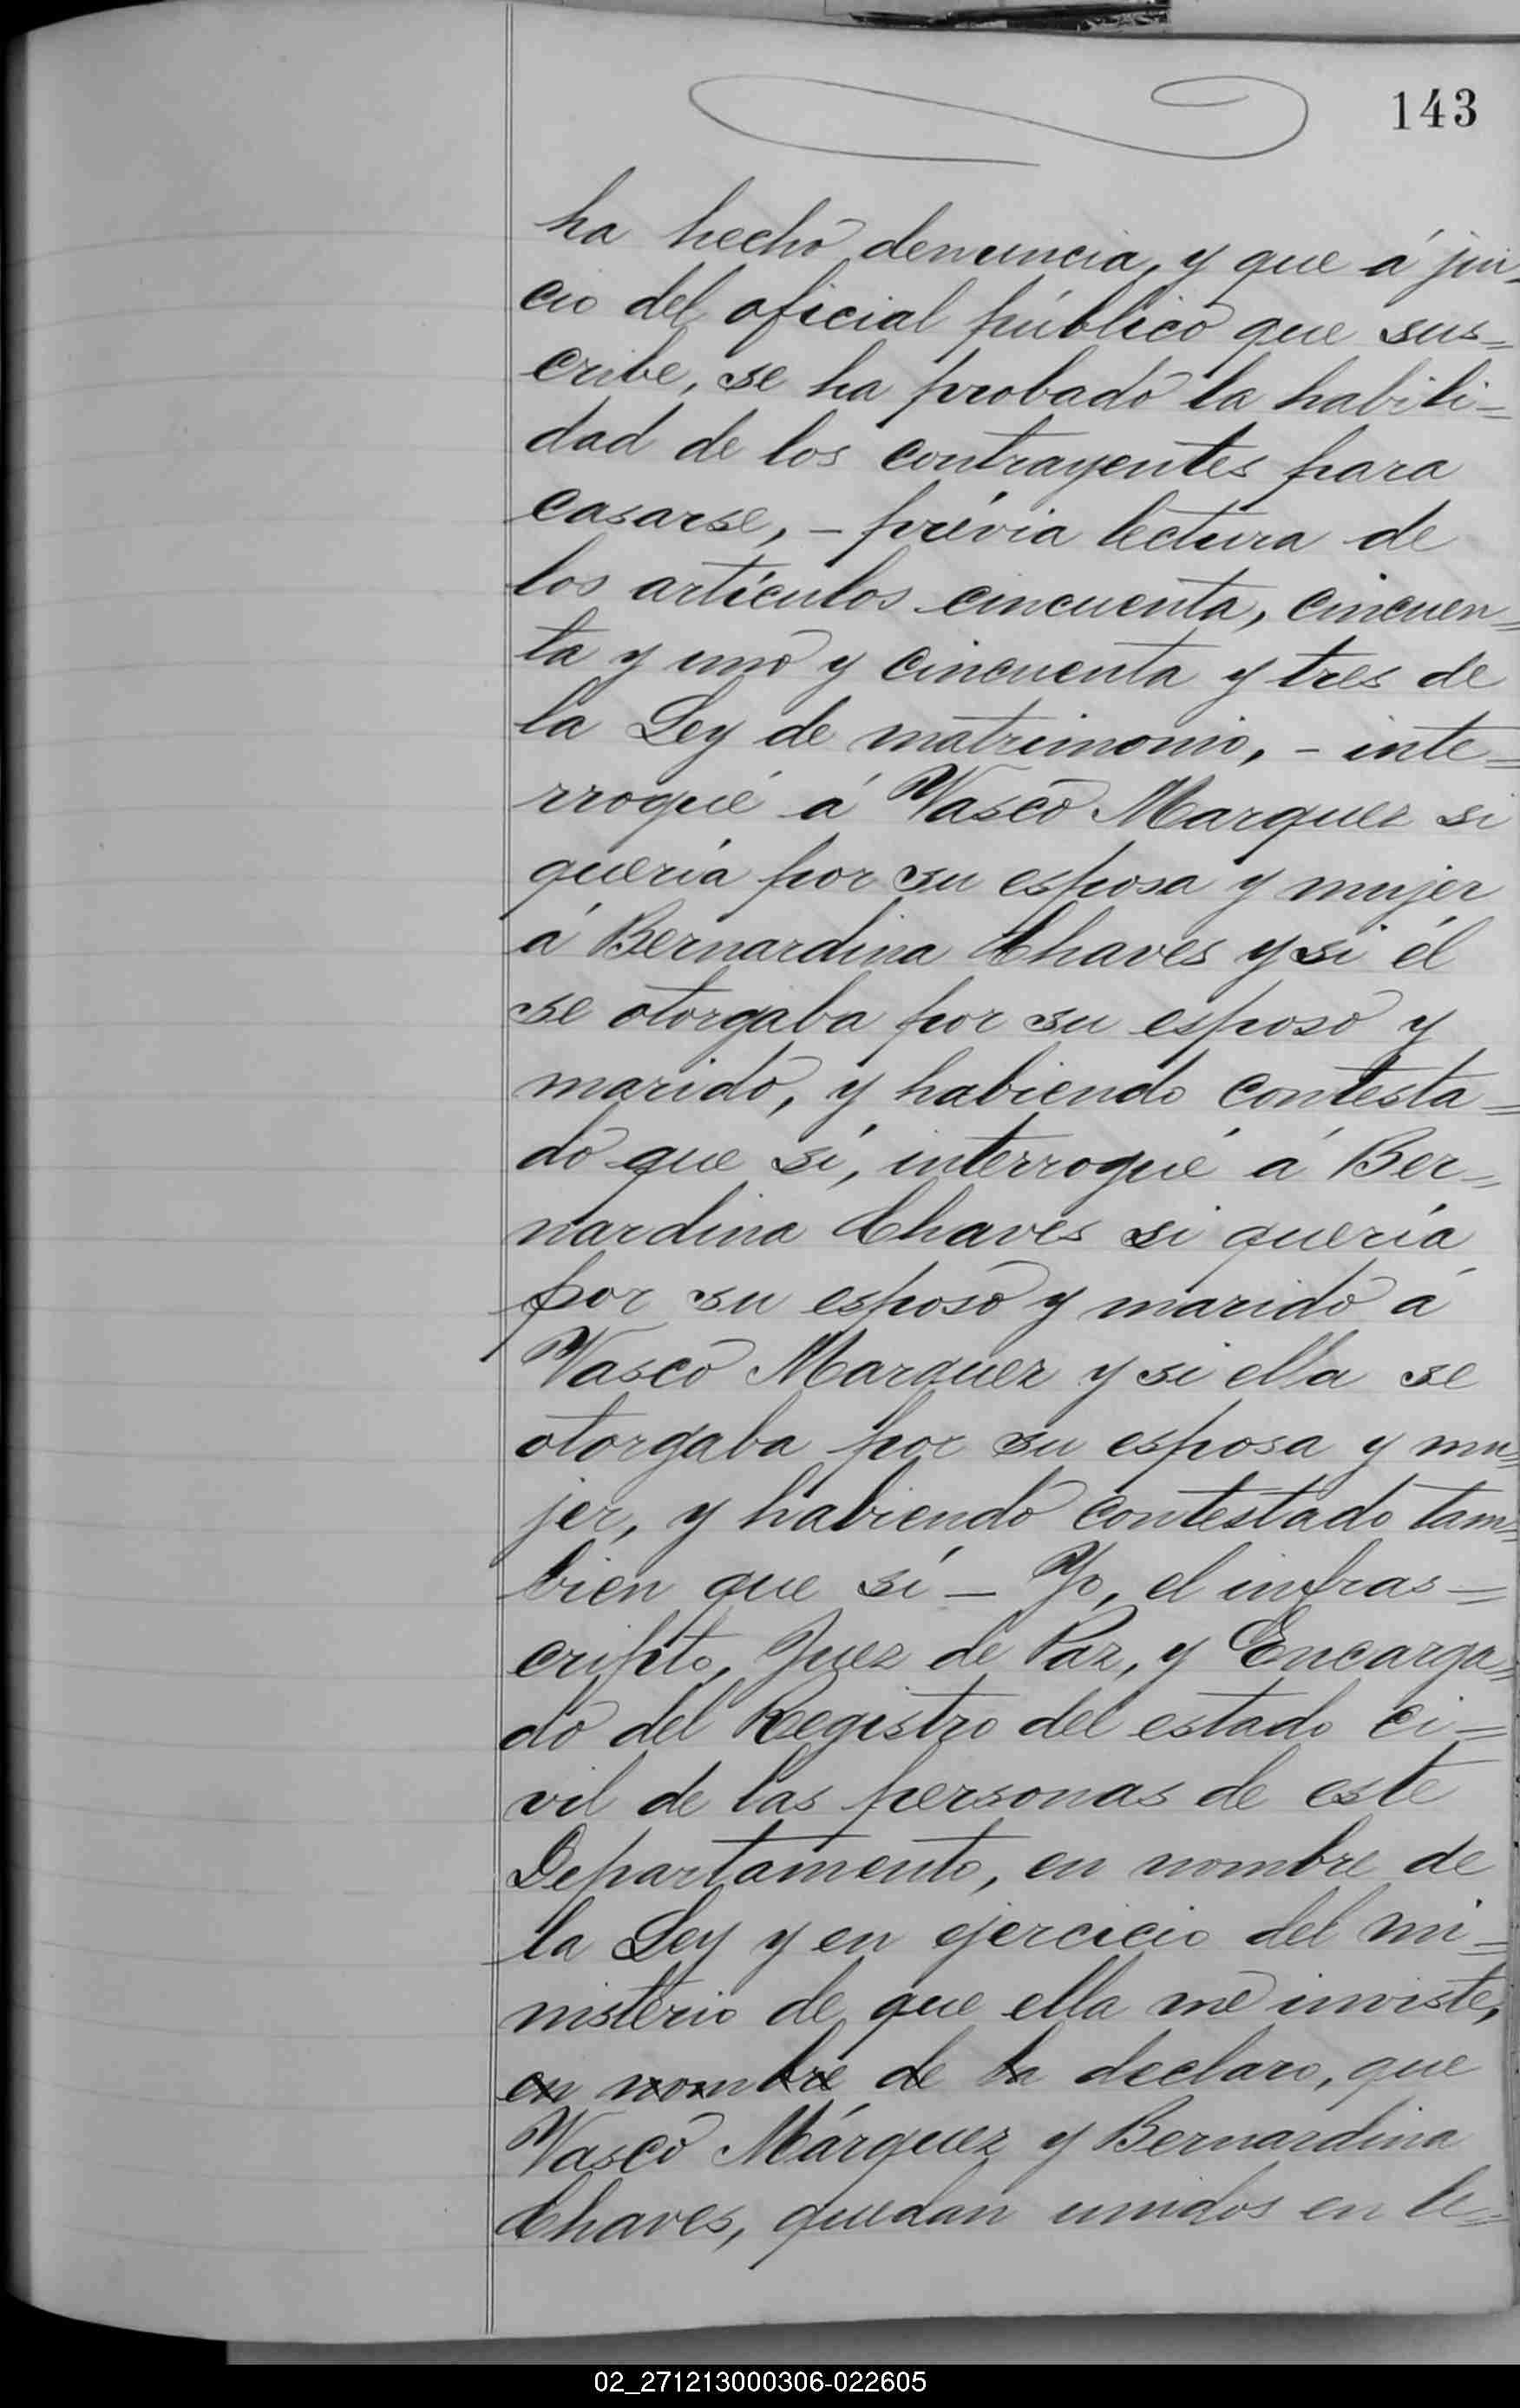 143
ha hecho denuncia, y que á jui-
cio del oficial público que sus=
cribe, se ha probado la habili=
dad de los contrayentes para
casarse, - prévia lectura de
los artículos cincuenta, cincuen=
ta y uno y cincuenta y tres de
la Ley de matrimonio, - inte=
rrogué á Vasco Marquez si
quería por su esposa y mujer
á Bernardina Chaves y si él
se otorgaba por su esposo y
marido, y habiendo contesta=
do que sí, interrogué á Ber=
nardina Chaves si quería
por su esposo y marido á
Vasco Marquez y si ella se
otorgaba por su esposa y mu=
jer, y habiendo contestado tam=
bien que sí - Yo, el infras=
cripto, Juez de Paz, y Encarga=
do del Registro del estado ci=
vil de las personas de este
Departamento, en nombre de
la Ley y en ejercicio del mi=
nisterio de que ella me inviste,
en nombre de la declaro, que
Vasco Márquez y Bernardina
Chaves, quedan unidos en le=
02_271213000306-022605